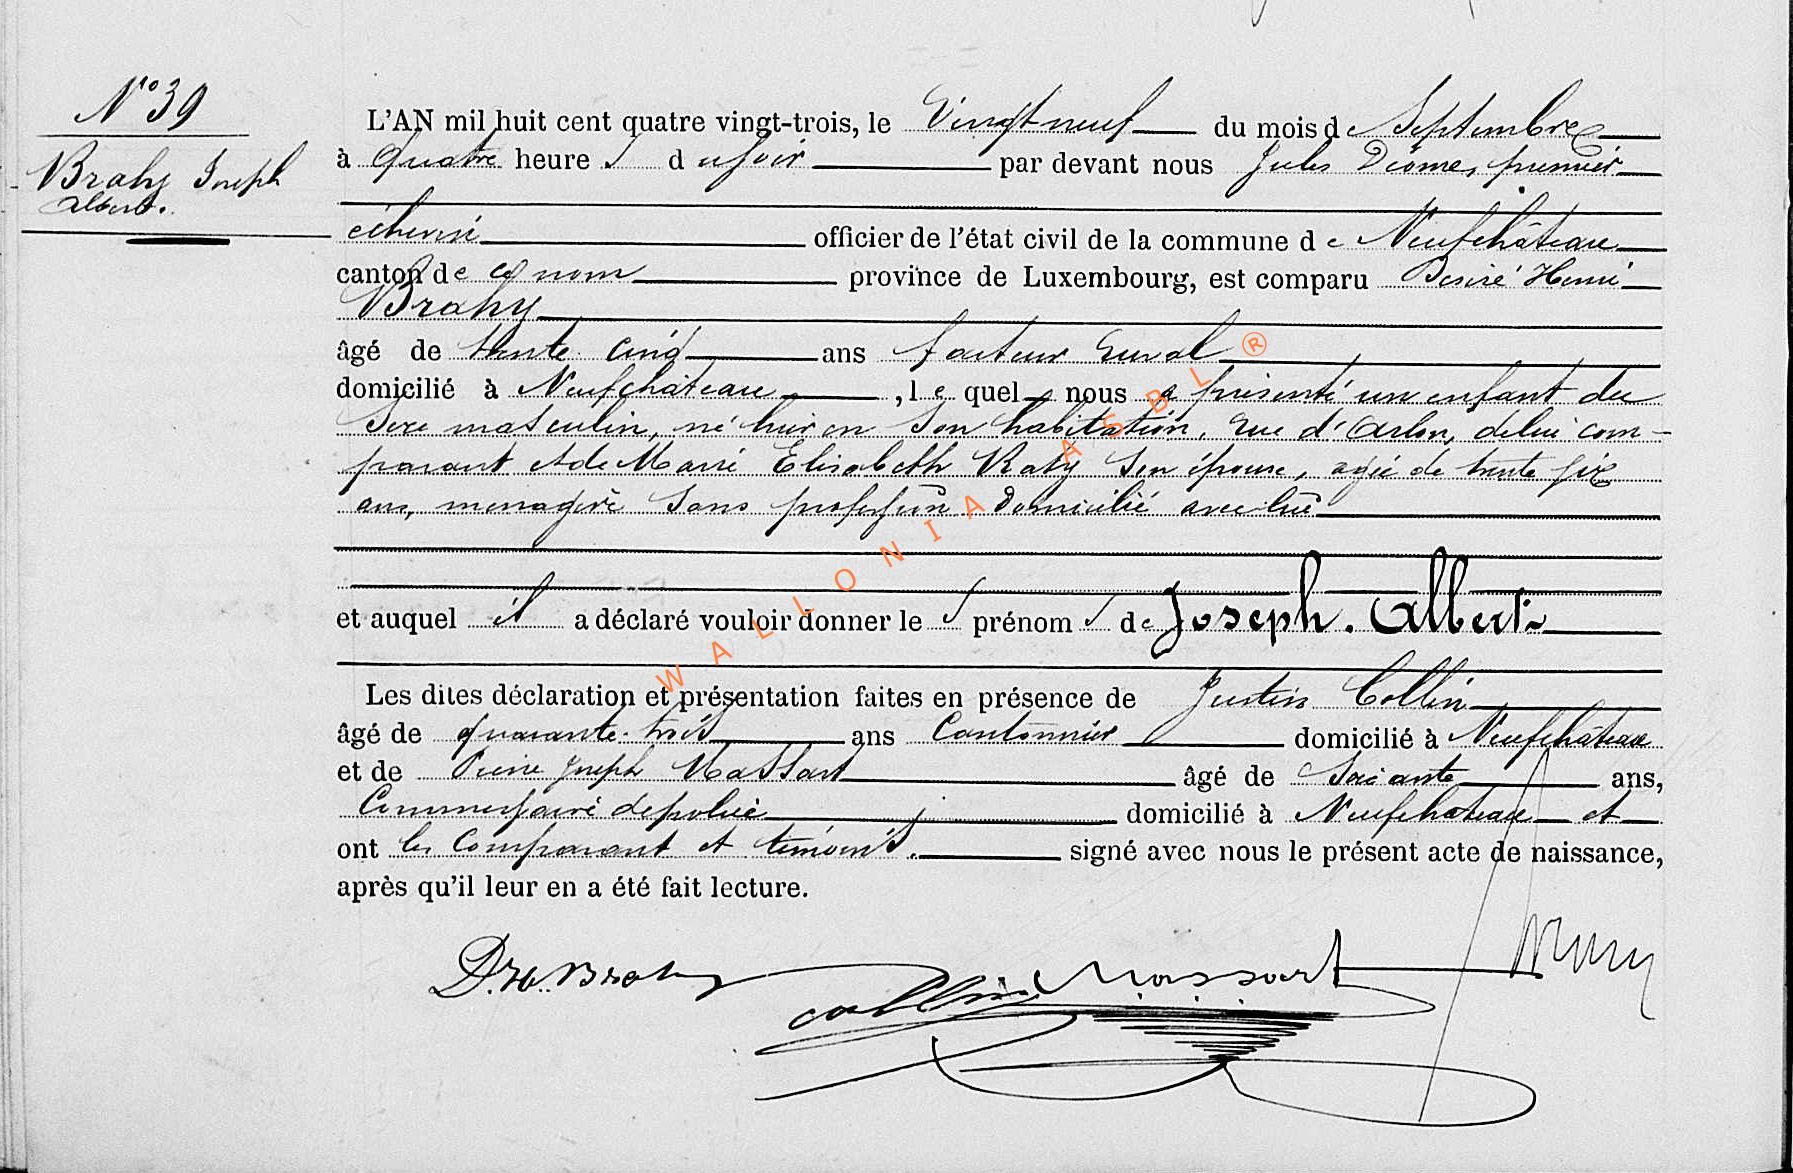 N° 39
Brahy Joseph
Albert.
L'AN mil huit cent quatre vingt-trois, le Vingt neuf du mois de Septembre
à quatre heures du soir par devant nous Jules Diome, premier
échevin officier de l'état civil de la commune de Neufchâteau
canton de ce nom province de Luxembourg, est comparu Desiré Henri
Brahy
âgé de trente cinq ans facteur rural
domicilié à Neufchâteau, lequel nous a présenté un enfant du
sexe masculin, né hier en son habitation, rue d'Arlon, de lui com-
parant et de Marie Elisabeth Raty son épouse, agée de trente six
ans, menagère sans profession domicilié avec lui
et auquel il a déclaré vouloir donner les prénoms de Joseph. Albert
Les dites déclaration et présentation faites en présence de Justin Collin
âgé de quarante-trois ans Cantonnier domicilié à Neufchâteau
et de Pierre Joseph Massart âgé de Soixante ans,
Commissaire de police domicilié à Neufchateau et
ont les Comparant et témoins. signé avec nous le présent acte de naissance,
après qu'il leur en a été fait lecture.
D. H. Brahy Collin Massart
WALLONIA ASBL ®